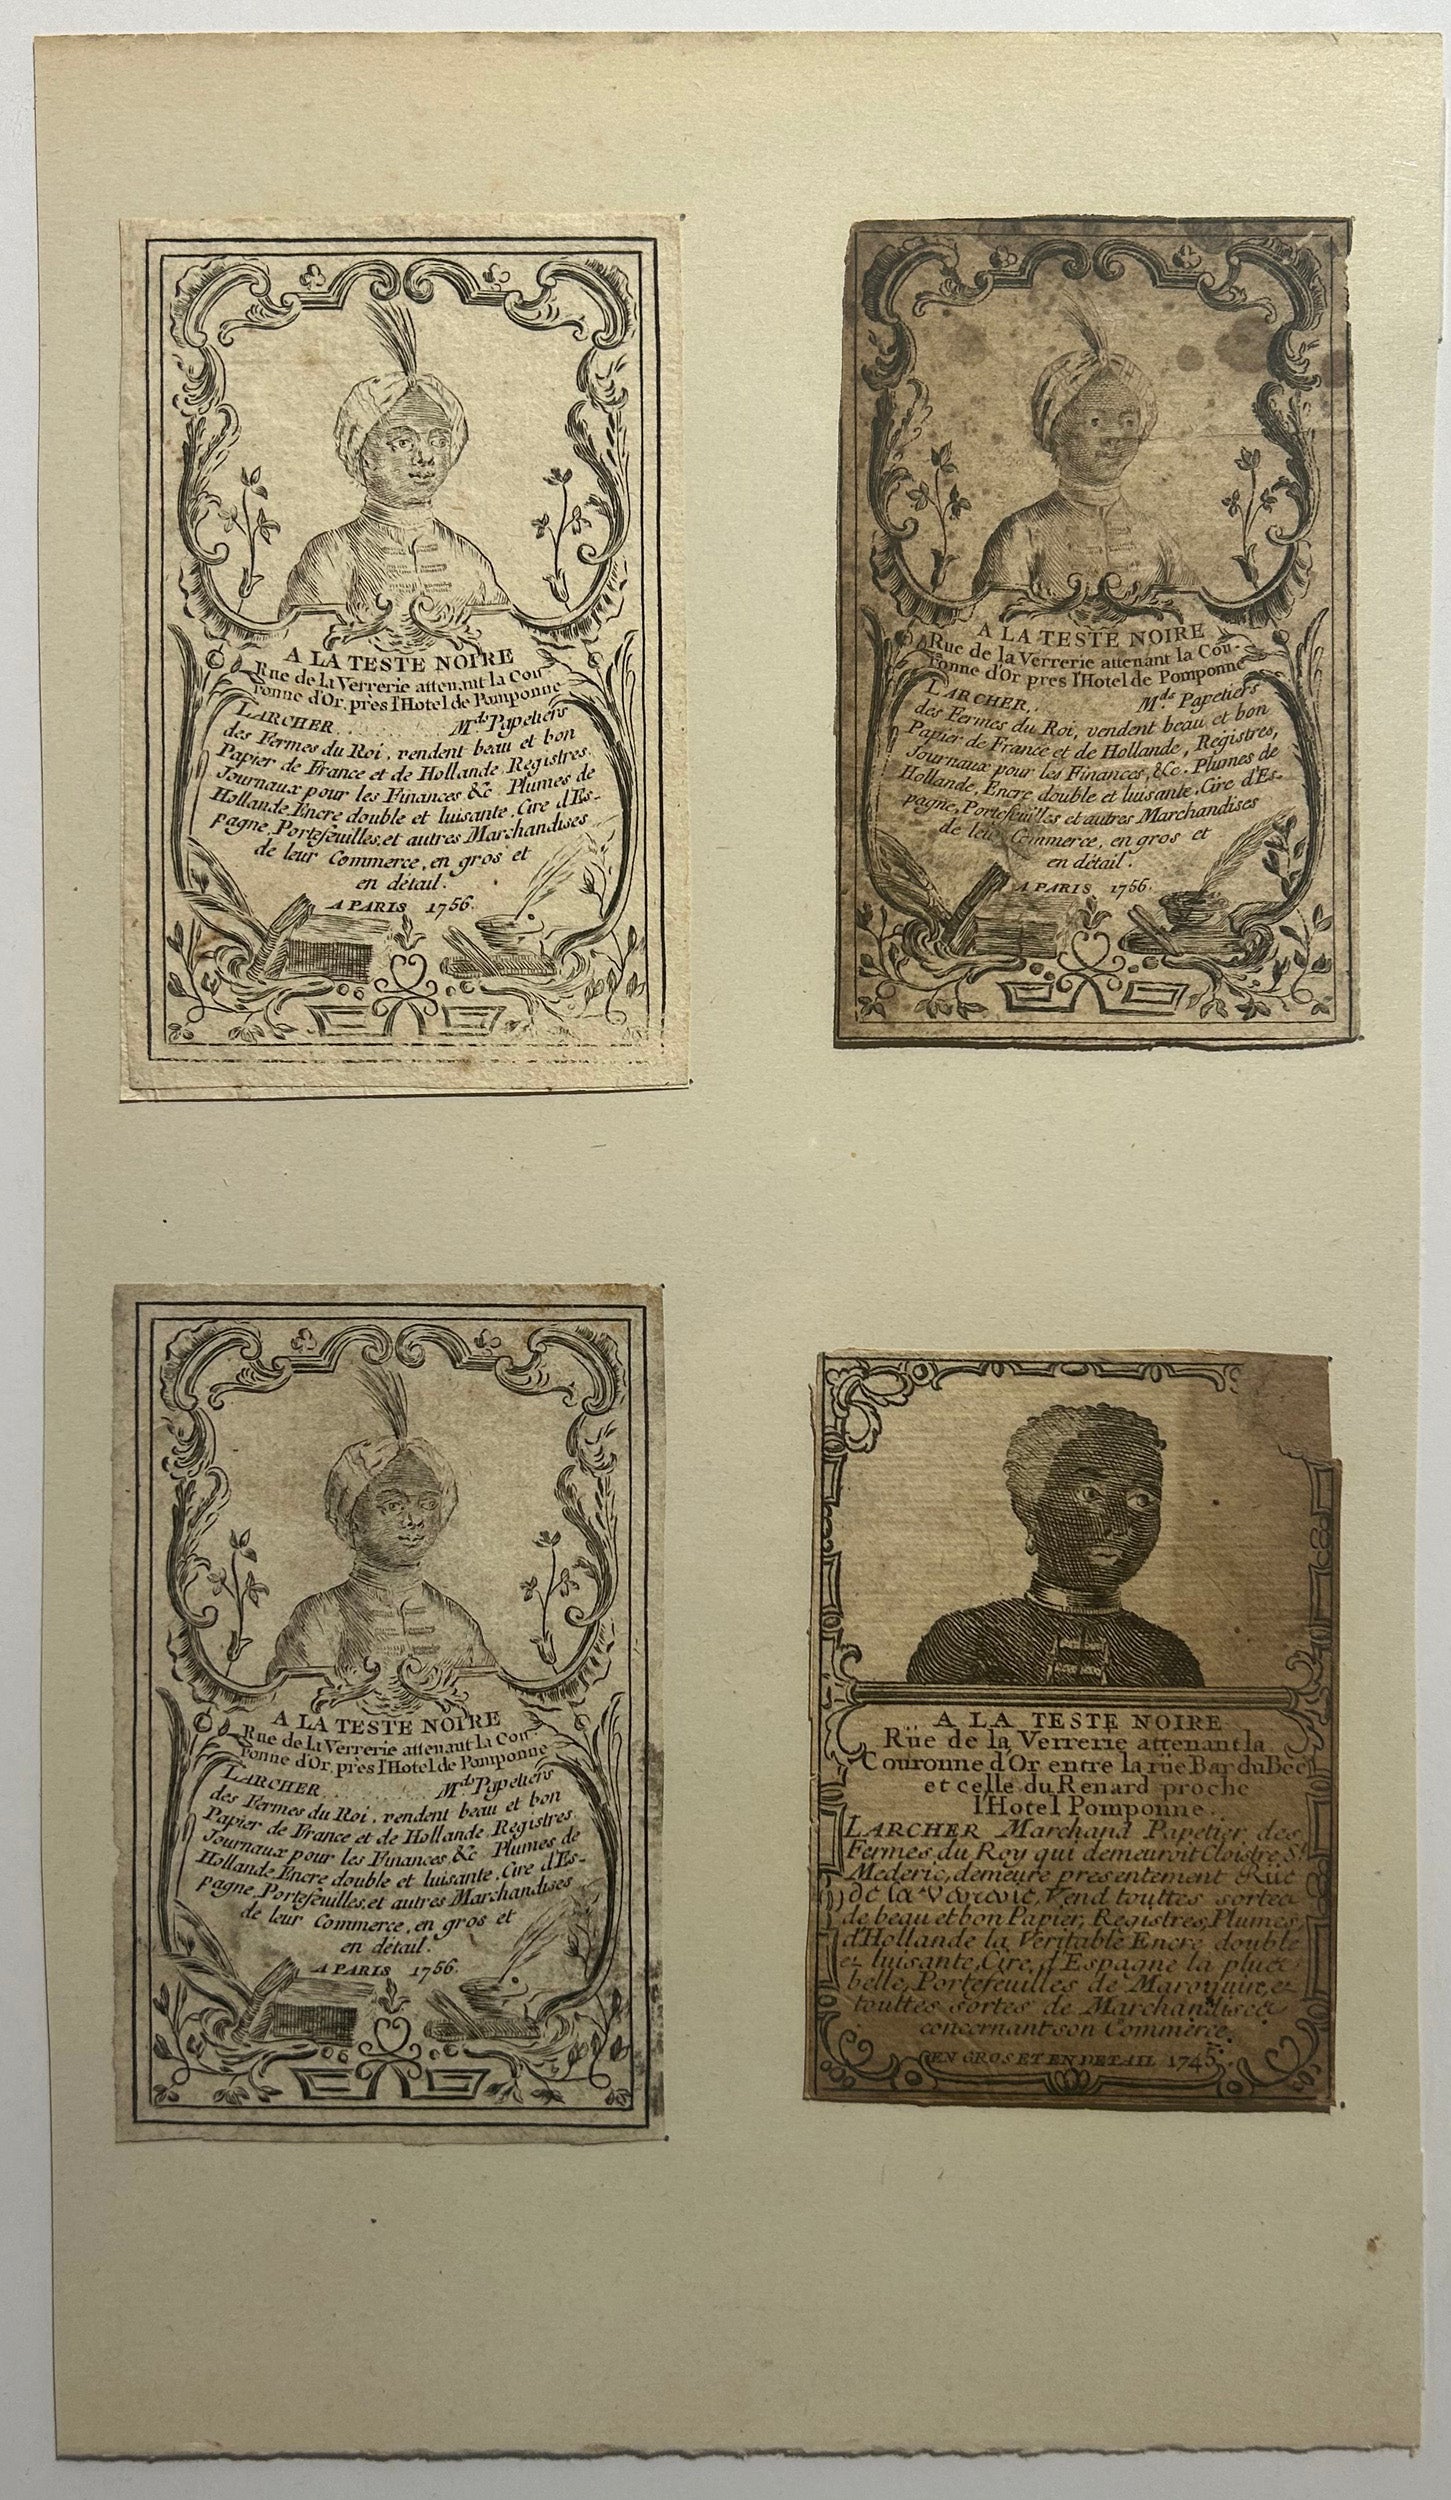 A LA TESTE NOIRE
Rue de la Verrerie attenant la Cou-
ronne d'Or, près l'Hotel de Pomponne
LARCHER . . . . . . . Mds. Papetiers
des Fermes du Roi, vendent beau et bon
Papier de France et de Hollande, Registres,
Journaux pour les Finances, &c. Plumes de
Hollande, Encre double et luisante, Cire d'Es-
pagne, Portefeuilles, et autres Marchandises
de leur Commerce, en gros et
en détail.
A PARIS 1756.
A LA TESTE NOIRE
Rue de la Verrerie attenant la Cou-
ronne d'Or, pres l'Hotel de Pomponne
LARCHER . . Mds. Papetiers
des Fermes du Roi, vendent beau et bon
Papier de France et de Hollande, Registres,
Journaux pour les Finances, &c. Plumes de
Hollande, Encre double et luisante, Cire d'Es-
pagne, Portefeuilles et autres Marchandises
de leur Commerce, en gros et
en détail.
A PARIS 1756.
A LA TESTE NOIRE
Rue de la Verrerie attenant la Cou-
ronne d'Or, près l'Hotel de Pomponne
LARCHER . . . . . . . Mds. Papetiers
des Fermes du Roi, vendent beau et bon
Papier de France et de Hollande, Registres,
Journaux pour les Finances, &c. Plumes de
Hollande, Encre double et luisante, Cire d'Es-
pagne, Portefeuilles, et autres Marchandises
de leur Commerce, en gros et
en détail.
A PARIS 1756.
A LA TESTE NOIRE
Rüe de la Verrerie attenant la
Couronne d'Or entre la rüe Bar du Bec
et celle du Renard proche
l'Hotel Pomponne.
LARCHER Marchand Papetier des
Fermes du Roy qui demeuroit Cloistre St.
Mederic, demeure presentement Rüe
de la Verrerie, Vend touttes sortes
de beau et bon Papier, Registres, Plumes,
d'Hollande la Veritable Encre double
et luisante, Cire d'Espagne la plus
belle, Portefeuilles de Maroquin, et
touttes sortes de Marchandises
concernant son Commerce.
EN GROS ET EN DETAIL 1745.